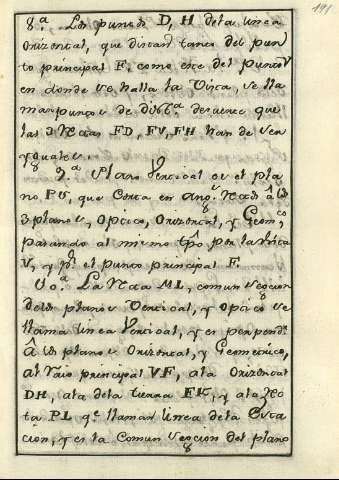 191
8.ª Los puntos D, H de la linea
Orizontal, que distan tanto del pun
to principal F, como este del punto V
en donde se halla la Vista, se lla
man puntos de dist.ª de suerte que
las 3 Rectas FD, FV, FH han de ser
yguales.
9.ª Plano Vertical es el pla
no PV, que corta en ang.s Rectos â los
3 planos, Optico, Orizontal, y Geom.co
pasando al mismo tpo por la vista
V, y p.r el punto principal F.
10.ª La Recta ML, comun seccion
de los planos Vertical, y Optico se
llama linea Vertical, y es perpend.r
â los planos Orizontal, y Geometrico,
al raio principal VF, a la Orizontal
DH, a la de la tierra FK, y a la Rec
ta PL q.e llaman linea de la Esta
cion, y es la comun seccion del plano